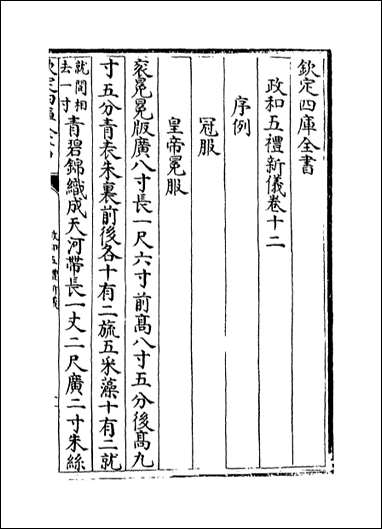 欽定四庫全書
政和五禮新儀卷十二
序例
冠服
皇帝冕服
衮冕冕版廣八寸長一尺六寸前髙八寸五分後髙九
寸五分青表朱裏前後各十有二旒五采藻十有二就
就間相
去一寸青碧錦織成天河帶長一丈二尺廣二寸朱絲
政和五禮新儀